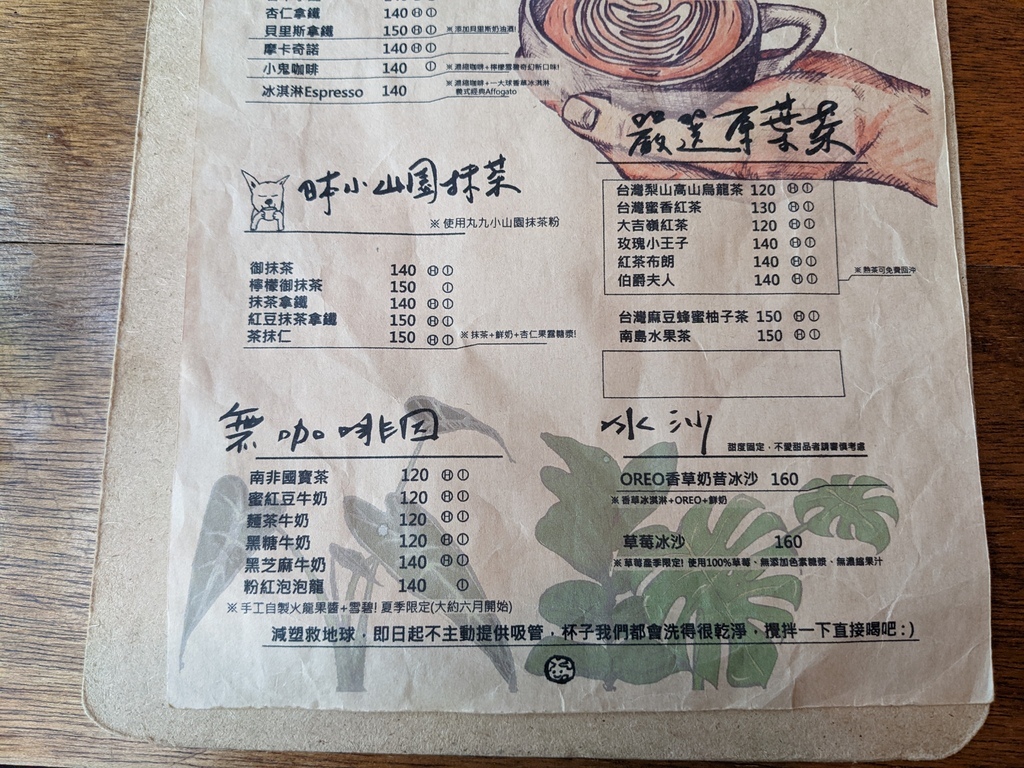 杏仁拿鐵 140 Ⓗ Ⓘ
貝里斯拿鐵 150 Ⓗ Ⓘ ※添加貝里斯奶油酒!
摩卡奇諾 140 Ⓗ Ⓘ
小鬼咖啡 140 Ⓘ ※濃縮咖啡+檸檬雪碧奇幻新口味!
冰淇淋Espresso 140 ※濃縮咖啡+一大球香草冰淇淋
義式經典Affogato
日本小山園抹茶
※使用丸九小山園抹茶粉
御抹茶 140 Ⓗ Ⓘ
檸檬御抹茶 150 Ⓘ
抹茶拿鐵 140 Ⓗ Ⓘ
紅豆抹茶拿鐵 150 Ⓗ Ⓘ
茶抹仁 150 Ⓗ Ⓘ ※抹茶+鮮奶+杏仁果露糖漿!
嚴選原葉茶
台灣梨山高山烏龍茶 120 Ⓗ Ⓘ
台灣蜜香紅茶 130 Ⓗ Ⓘ
大吉嶺紅茶 120 Ⓗ Ⓘ
玫瑰小王子 140 Ⓗ Ⓘ
紅茶布朗 140 Ⓗ Ⓘ
伯爵夫人 140 Ⓗ Ⓘ
※熱茶可免費回沖
台灣麻豆蜂蜜柚子茶 150 Ⓗ Ⓘ
南島水果茶 150 Ⓗ Ⓘ
無咖啡因
南非國寶茶 120 Ⓗ Ⓘ
蜜紅豆牛奶 120 Ⓗ Ⓘ
麵茶牛奶 120 Ⓗ Ⓘ
黑糖牛奶 120 Ⓗ Ⓘ
黑芝麻牛奶 140 Ⓗ Ⓘ
粉紅泡泡龍 140 Ⓘ
※手工自製火龍果醬+雪碧! 夏季限定(大約六月開始)
冰沙
甜度固定，不愛甜品者請審慎考慮
OREO香草奶昔冰沙 160
※香草冰淇淋+OREO+鮮奶
草莓冰沙 160
※草莓產季限定! 使用100%草莓、無添加色素糖漿、無濃縮果汁
減塑救地球，即日起不主動提供吸管，杯子我們都會洗得很乾淨，攪拌一下直接喝吧:)